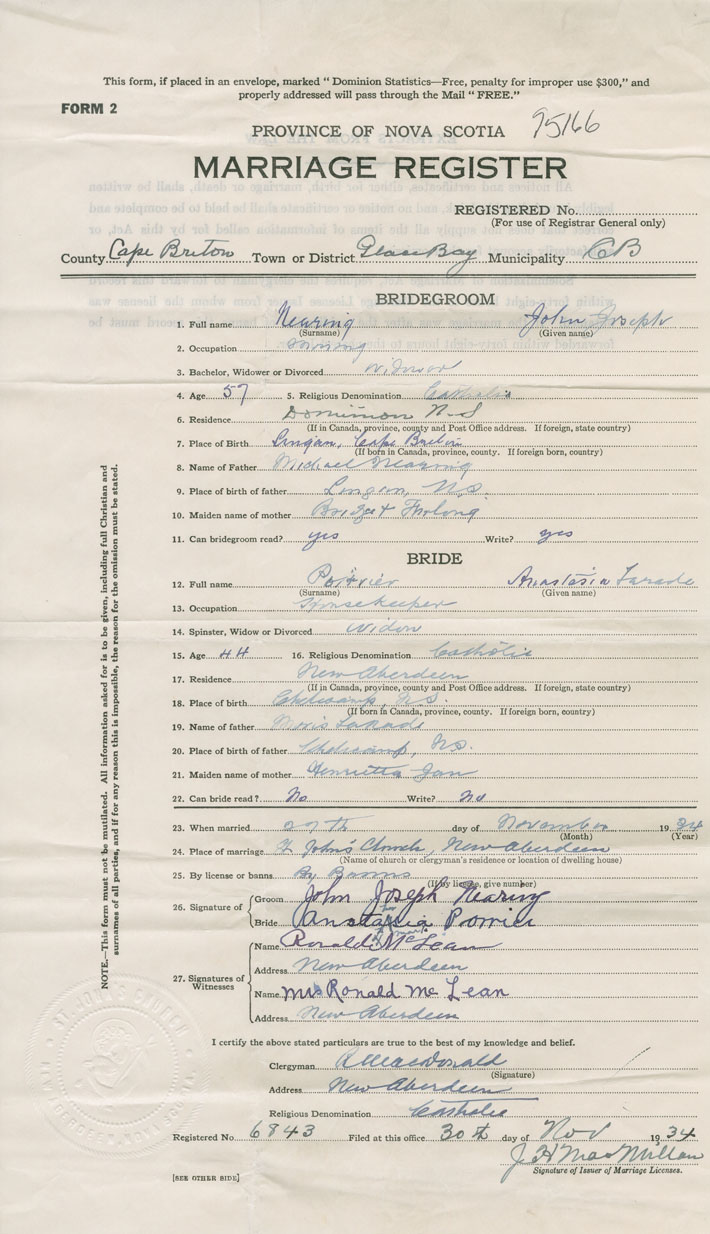 This form, if placed in an envelope, marked "Dominion Statistics—Free, penalty for improper use $300," and
properly addressed will pass through the Mail "FREE."
FORM 2
PROVINCE OF NOVA SCOTIA 95166
MARRIAGE REGISTER
REGISTERED No.
(For use of Registrar General only)
County Cape Briton Town or District Glace Bay Municipality CB
BRIDEGROOM
1. Full name Nearing John Joseph
(Surname) (Given name)
2. Occupation mining
3. Bachelor, Widower or Divorced widower
4. Age 57 5. Religious Denomination Catholic
6. Residence Dominion N.S
(If in Canada, province, county and Post Office address. If foreign, state country)
7. Place of Birth Lingan, Cape Breton
(If born in Canada, province, county. If foreign born, country)
8. Name of Father Michael Nearing
9. Place of birth of father Lingan, N.S.
10. Maiden name of mother Bridget Furlong
11. Can bridegroom read? yes Write? yes
BRIDE
12. Full name Poirrier Anastasia Larade
(Surname) (Given name)
13. Occupation Housekeeper
14. Spinster, Widow or Divorced Widow
15. Age 44 16. Religious Denomination Catholic
17. Residence New Aberdeen
(If in Canada, province, county and Post Office address. If foreign, state country)
18. Place of birth N.S.
(If born in Canada, province, county. If foreign born, country)
19. Name of father Larade
20. Place of birth of father N.S.
21. Maiden name of mother Henrietta
22. Can bride read? No Write? No
23. When married 29th day of November 19 34
(Month) (Year)
24. Place of marriage St John's Church, New Aberdeen
(Name of church or clergyman's residence or location of dwelling house)
25. By license or banns By Banns
(If by license, give number)
26. Signature of
Groom John Joseph Nearing
Bride Anastasia Poirrier
27. Signatures of Witnesses
Name Ronald McLean
Address New Aberdeen
Name Mrs Ronald Mc Lean
Address New Aberdeen
I certify the above stated particulars are true to the best of my knowledge and belief.
Clergyman MacDonald
(Signature)
Address New Aberdeen
Religious Denomination Catholic
Registered No. 6843 Filed at this office 30th day of Nov 1934
J H MacMillan
Signature of Issuer of Marriage Licenses.
[SEE OTHER SIDE]
NOTE.—This form must not be mutilated. All information asked for is to be given, including full Christian and
surnames of all parties, and if for any reason this is impossible, the reason for the omission must be stated.